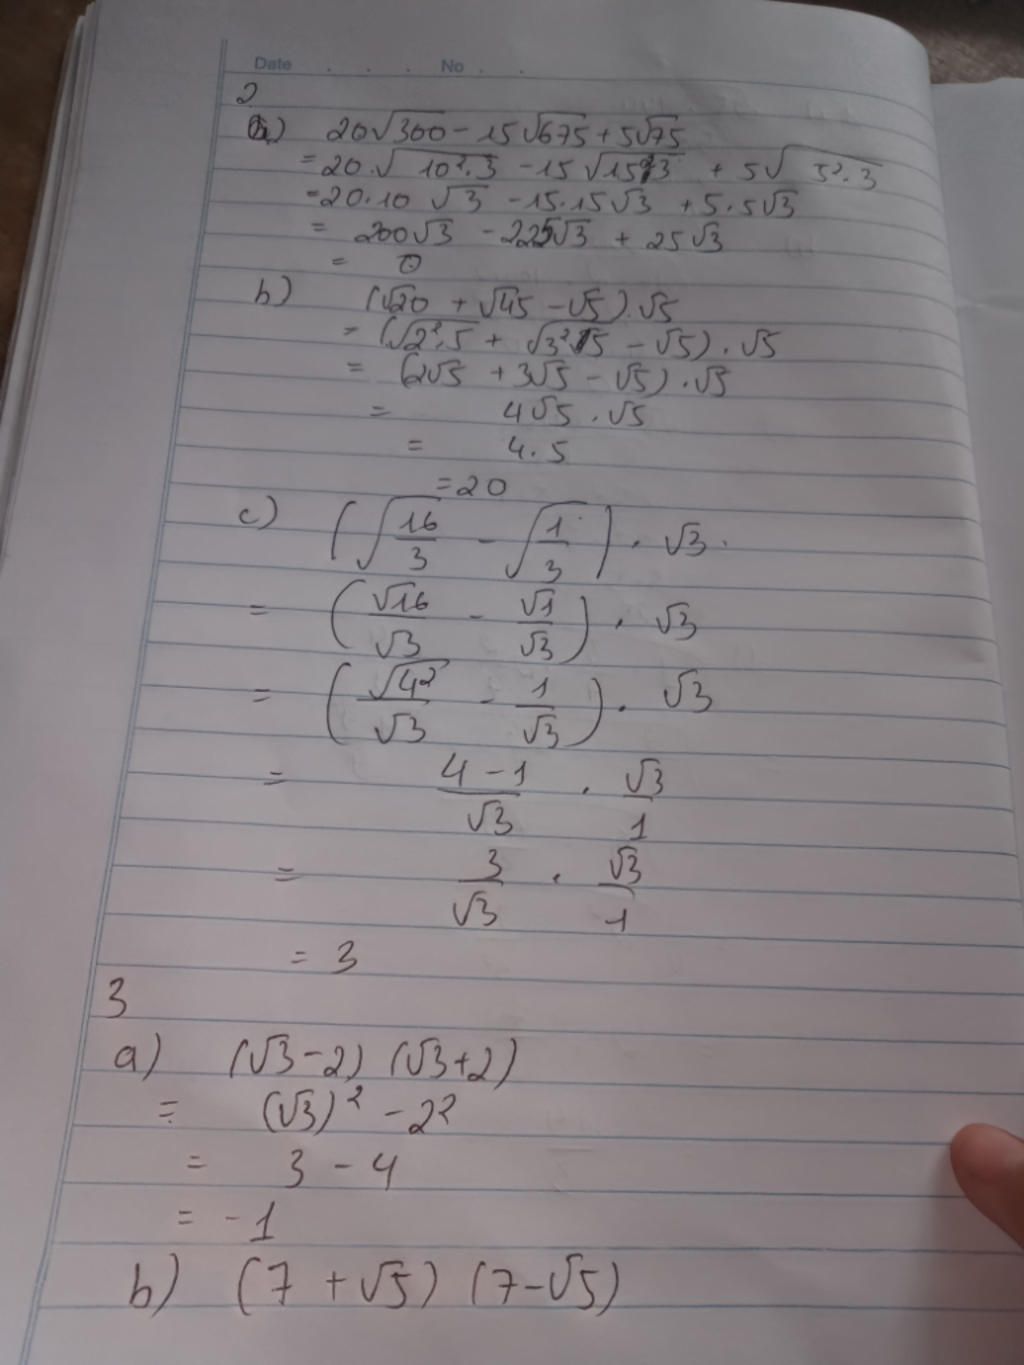 Date . . . No . .
2
a) 20√300 - 15√675 + 5√75
= 20.√10².3 - 15√15².3 + 5√5².3
= 20.10 √3 - 15.15√3 + 5.5√3
= 200√3 - 225√3 + 25√3
= 0
b) (√20 + √45 - √5).√5
= (√2².5 + √3².5 - √5).√5
= (2√5 + 3√5 - √5).√5
= 4√5 .√5
= 4.5
= 20
c) (√16/3 - √1/3) . √3.
= (√16/√3 - √1/√3) . √3
= (√4²/√3 - 1/√3) . √3
= 4-1/√3 . √3/1
= 3/√3 . √3/1
= 3
3
a) (√3-2) (√3+2)
= (√3)² - 2²
= 3 - 4
= -1
b) (7 + √5) (7-√5)